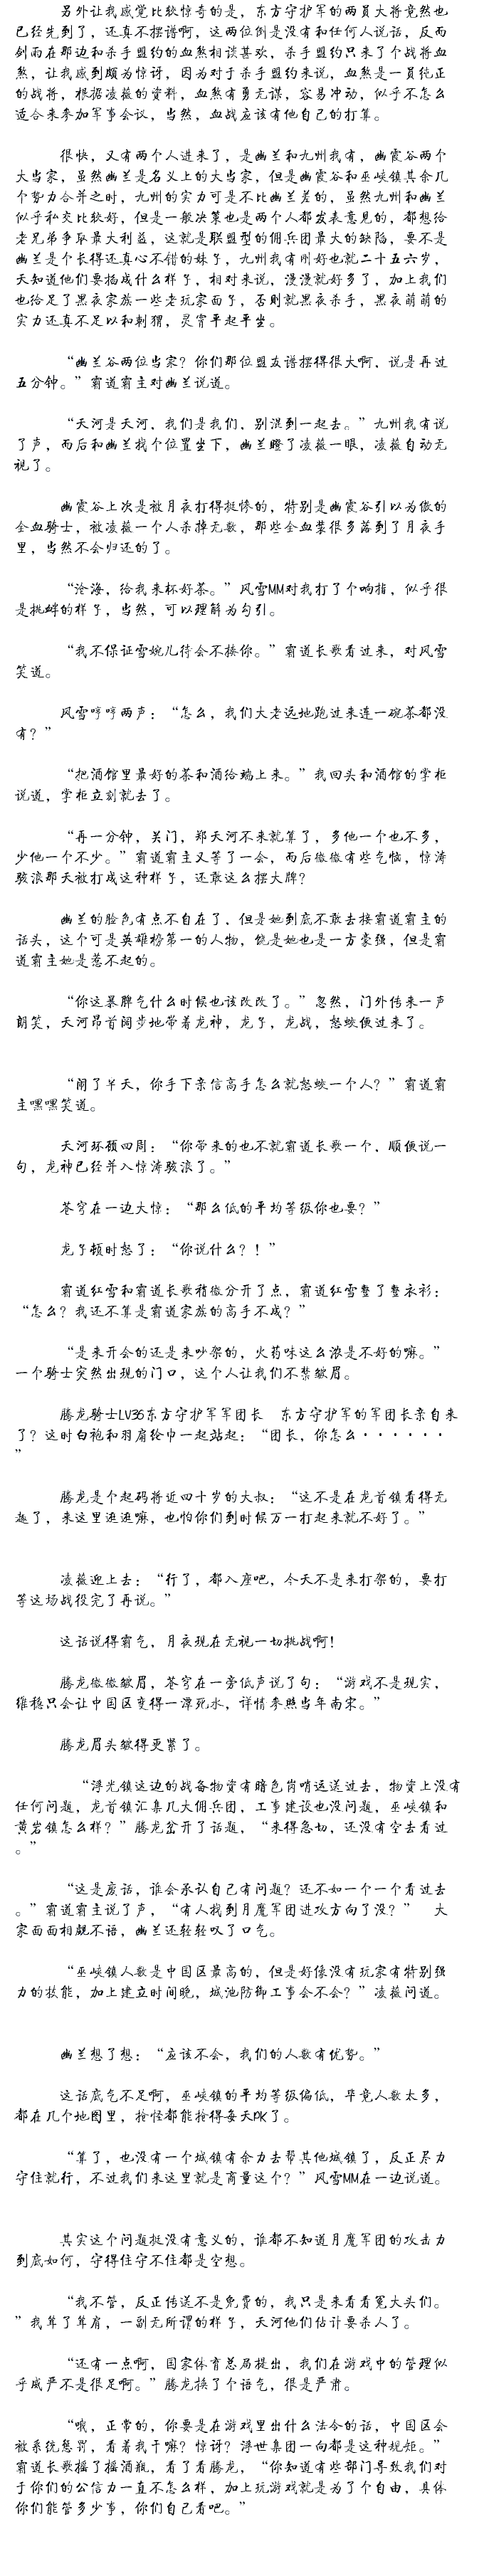 另外让我感觉比较惊奇的是，东方守护军的两员大将竟然也
已经先到了，还真不摆谱啊，这两位倒是没有和任何人说话，反而
剑雨在那边和杀手盟约的血煞相谈甚欢，杀手盟约只来了个战将血
煞，让我感到颇为惊讶，因为对于杀手盟约来说，血煞是一员纯正
的战将，根据凌薇的资料，血煞有勇无谋，容易冲动，似乎不怎么
适合来参加军事会议，当然，血战应该有他自己的打算。
很快，又有两个人进来了，是幽兰和九州我有，幽霞谷两个
大当家，虽然幽兰是名义上的大当家，但是幽霞谷和巫峡镇其余几
个势力合并之时，九州的实力可是不比幽兰差的，虽然九州和幽兰
似乎私交比较好，但是一般决策也是两个人都发表意见的，都想给
老兄弟争取最大利益，这就是联盟型的佣兵团最大的缺陷，要不是
幽兰是个长得还真心不错的妹子，九州我有刚好也就二十五六岁，
天知道他们要搞成什么样子，相对来说，漫漫就好多了，加上我们
也给足了黑夜家族一些老玩家面子，否则就黑夜杀手，黑夜萌萌的
实力还真不足以和刺猬，灵霄平起平坐。
“幽兰谷两位当家？你们那位盟友谱摆得很大啊，说是再过
五分钟。”霸道霸主对幽兰说道。
“天河是天河，我们是我们，别混到一起去。”九州我有说
了声，而后和幽兰找个位置坐下，幽兰瞪了凌薇一眼，凌薇自动无
视了。
幽霞谷上次是被月夜打得挺惨的，特别是幽霞谷引以为傲的
全血骑士，被凌薇一个人杀掉无数，那些全血装很多落到了月夜手
里，当然不会归还的了。
“沧海，给我来杯好茶。”风雪MM对我打了个响指，似乎很
是挑衅的样子，当然，可以理解为勾引。
“我不保证雪婉儿待会不揍你。”霸道长歌看过来，对风雪
笑道。
风雪哼哼两声：“怎么，我们大老远地跑过来连一碗茶都没
有？”
“把酒馆里最好的茶和酒给端上来。”我回头和酒馆的掌柜
说道，掌柜立刻就去了。
“再一分钟，关门，郑天河不来就算了，多他一个也不多，
少他一个不少。”霸道霸主又等了一会，而后微微有些气恼，惊涛
骇浪那天被打成这种样子，还敢这么摆大牌？
幽兰的脸色有点不自在了，但是她到底不敢去接霸道霸主的
话头，这个可是英雄榜第一的人物，饶是她也是一方豪强，但是霸
道霸主她是惹不起的。
“你这暴脾气什么时候也该改改了。”忽然，门外传来一声
朗笑，天河昂首阔步地带着龙神，龙子，龙战，怒蛟便过来了。
“闹了半天，你手下亲信高手怎么就怒蛟一个人？”霸道霸
主嘿嘿笑道。
天河环顾四周：“你带来的也不就霸道长歌一个，顺便说一
句，龙神已经并入惊涛骇浪了。”
苍穹在一边大惊：“那么低的平均等级你也要？”
龙子顿时怒了：“你说什么？！”
霸道红雪和霸道长歌稍微分开了点，霸道红雪整了整衣衫：
“怎么？我还不算是霸道家族的高手不成？”
“是来开会的还是来吵架的，火药味这么浓是不好的嘛。”
一个骑士突然出现的门口，这个人让我们不禁皱眉。
腾龙骑士LV36东方守护军军团长　东方守护军的军团长亲自来
了？这时白袍和羽扇纶巾一起站起：“团长，你怎么······
”
腾龙是个起码将近四十岁的大叔：“这不是在龙首镇看得无
趣了，来这里逛逛嘛，也怕你们到时候万一打起来就不好了。”
凌薇迎上去：“行了，都入座吧，今天不是来打架的，要打
等这场战役完了再说。”
这话说得霸气，月夜现在无视一切挑战啊！
腾龙微微皱眉，苍穹在一旁低声说了句：“游戏不是现实，
维稳只会让中国区变得一潭死水，详情参照当年南宋。”
腾龙眉头皱得更紧了。
“浮光镇这边的战备物资有暗色肖哨运送过去，物资上没有
任何问题，龙首镇汇集几大佣兵团，工事建设也没问题，巫峡镇和
黄岩镇怎么样？”腾龙岔开了话题，“来得急切，还没有空去看过
。”
“这是废话，谁会承认自己有问题？还不如一个一个看过去
。”霸道霸主说了声，“有人找到月魔军团进攻方向了没？”　大
家面面相觑不语，幽兰还轻轻叹了口气。
“巫峡镇人数是中国区最高的，但是好像没有玩家有特别强
力的技能，加上建立时间晚，城池防御工事会不会？”凌薇问道。
幽兰想了想：“应该不会，我们的人数有优势。”
这话底气不足啊，巫峡镇的平均等级偏低，毕竟人数太多，
都在几个地图里，抢怪都能抢得每天PK了。
“算了，也没有一个城镇有余力去帮其他城镇了，反正尽力
守住就行，不过我们来这里就是商量这个？”风雪MM在一边说道。
其实这个问题挺没有意义的，谁都不知道月魔军团的攻击力
到底如何，守得住守不住都是空想。
“我不管，反正传送不是免费的，我只是来看看冤大头们。
”我耸了耸肩，一副无所谓的样子，天河他们估计要杀人了。
“还有一点啊，国家体育总局提出，我们在游戏中的管理似
乎威严不是很足啊。”腾龙换了个语气，很是严肃。
“哦，正常的，你要是在游戏里出什么法令的话，中国区会
被系统惩罚，看着我干嘛？惊讶？浮世集团一向都是这种规矩。”
霸道长歌摇了摇酒瓶，看了看腾龙，“你知道有些部门导致我们对
于你们的公信力一直不怎么样，加上玩游戏就是为了个自由，具体
你们能管多少事，你们自己看吧。”